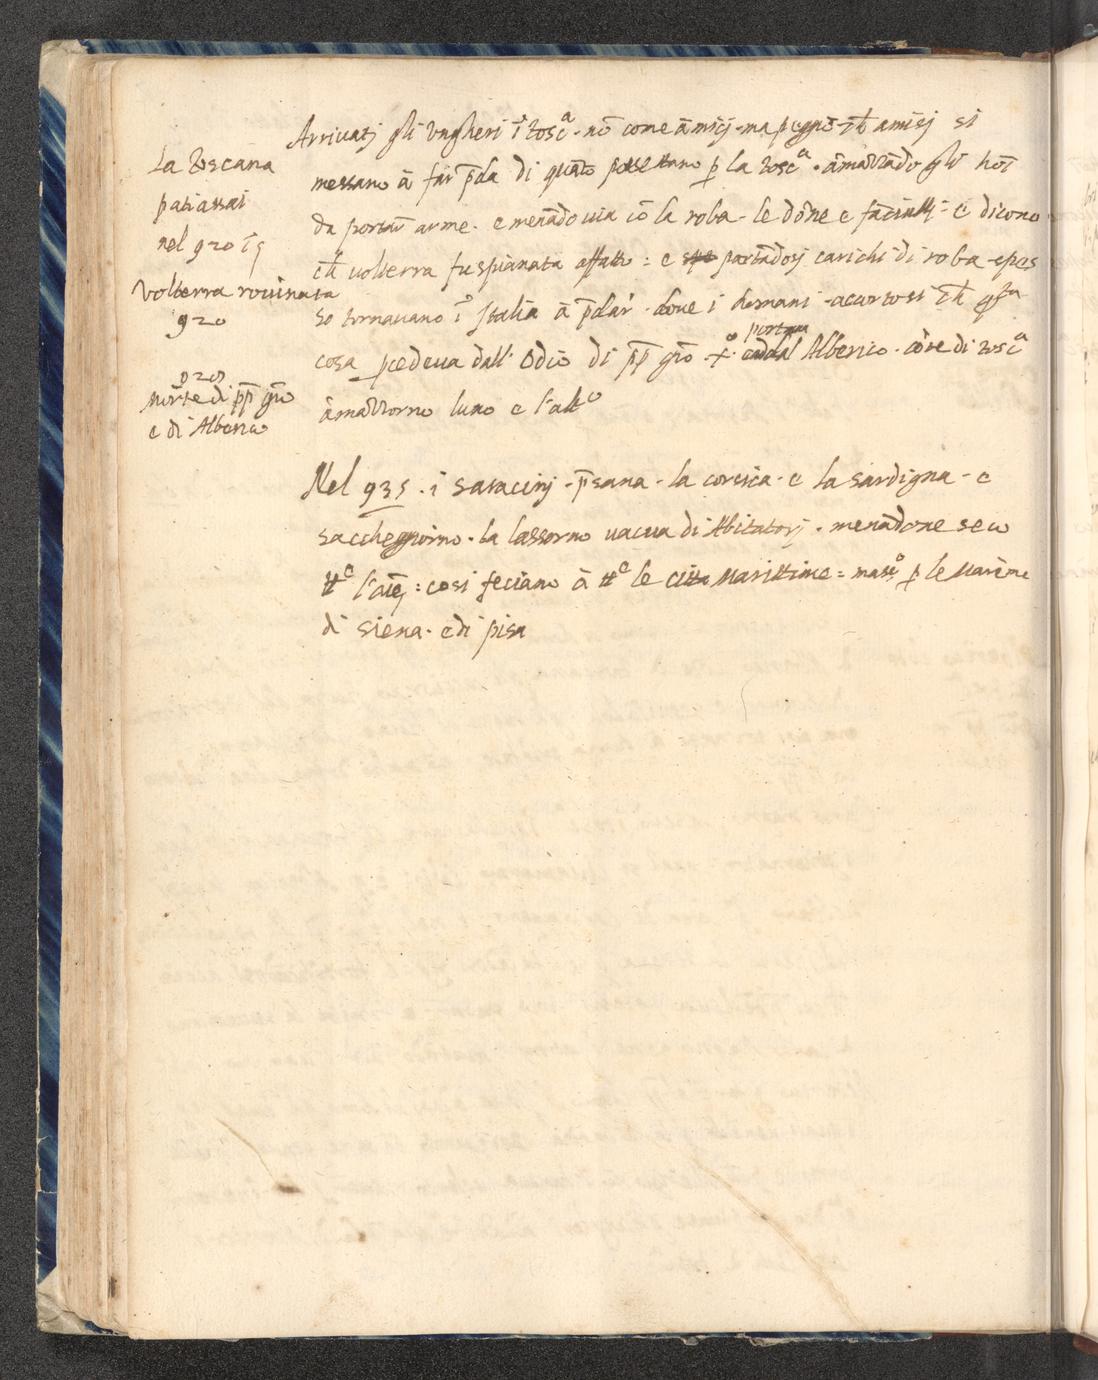 La Toscana
patì assai
nel 920 i͂
Volterra rouinata
920
920
morte di p͞p gio
e di Alberico
Arriuatj gli Vngheri i͂ tosc.ª - nō come āmicj - ma peggio ch̄ āmicj si
messano à far p̄da di quāto possettano p̱ la tosc.ª - āmazzādo gli hoī
da portar arme. e menādo uia cō la roba - le dōne e fāciullj - e dicono
ch̄ uolterra fu spianata affatto : e portādosj carichi di roba - spes
so tornauano i͂ Italia à p̄dar' - doue i Romani - accortosi ch̄ q̄sta
cosa p̱cedeua dall' Odio di p͞p gio x.º portaua Alberico - cōte di tosc.ª
āmazzorno luno e l'altº
Nel 935 . i saracinj - p̄sana - la corsica - e la sardigna - e
saccheggiorno - la lassorno uacua di Abitatorj . menādone seco
tt.e l'aīe : cosi feciano à tt.e le citta Marittime = mass.º p̱ le Marēme
di Siena - e di pisa